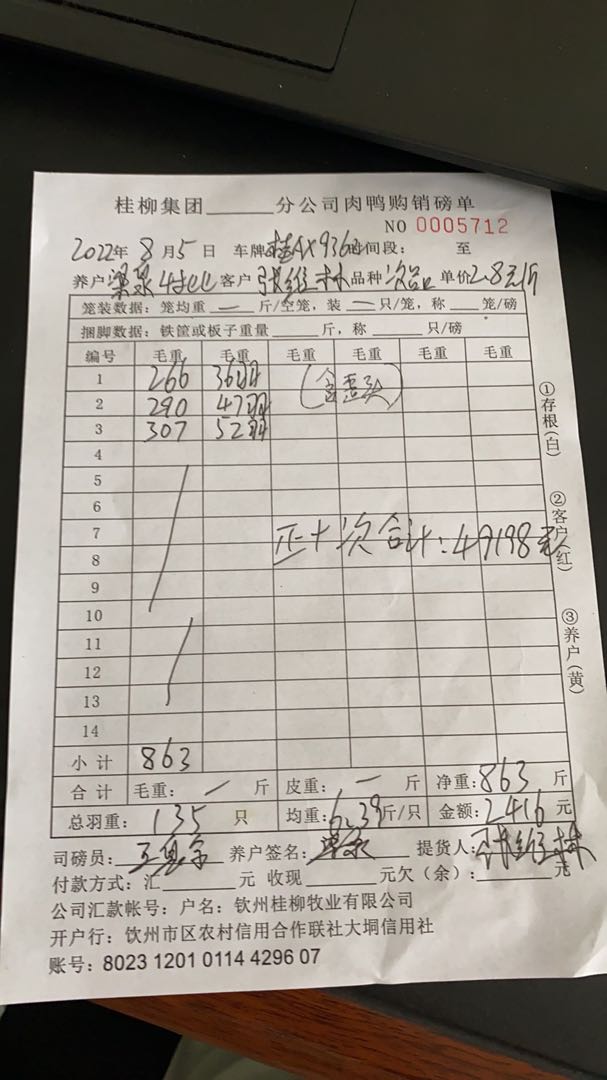 桂柳集团______分公司肉鸭购销磅单
NO 0005712
2022年 8月5日 车牌桂AX936 时间段: 至
养户梁泉 4批 客户张维林 品种次品 单价2.8元/斤
笼装数据：笼均重 — 斤/空笼，装 — 只/笼，称____笼/磅
捆脚数据：铁筐或板子重量______斤，称____只/磅
编号 毛重 毛重 毛重 毛重 毛重 毛重
1 266 36羽 (含歪头)
2 290 47羽
3 307 52羽
4
5
6
7 正+次合计:49198元
8
9
10
11
12
13
14
小计 863
合计 毛重: — 斤 皮重: — 斤 净重:863 斤
总羽重: 135 只 均重:6.39斤/只 金额:2416元
司磅员: 养户签名:梁泉 提货人:张维林
付款方式：汇______元 收现______元欠（余）:______元
公司汇款帐号：户名：钦州桂柳牧业有限公司
开户行：钦州市区农村信用合作联社大垌信用社
账号：8023 1201 0114 4296 07
①存根(白)
②客户(红)
③养户(黄)